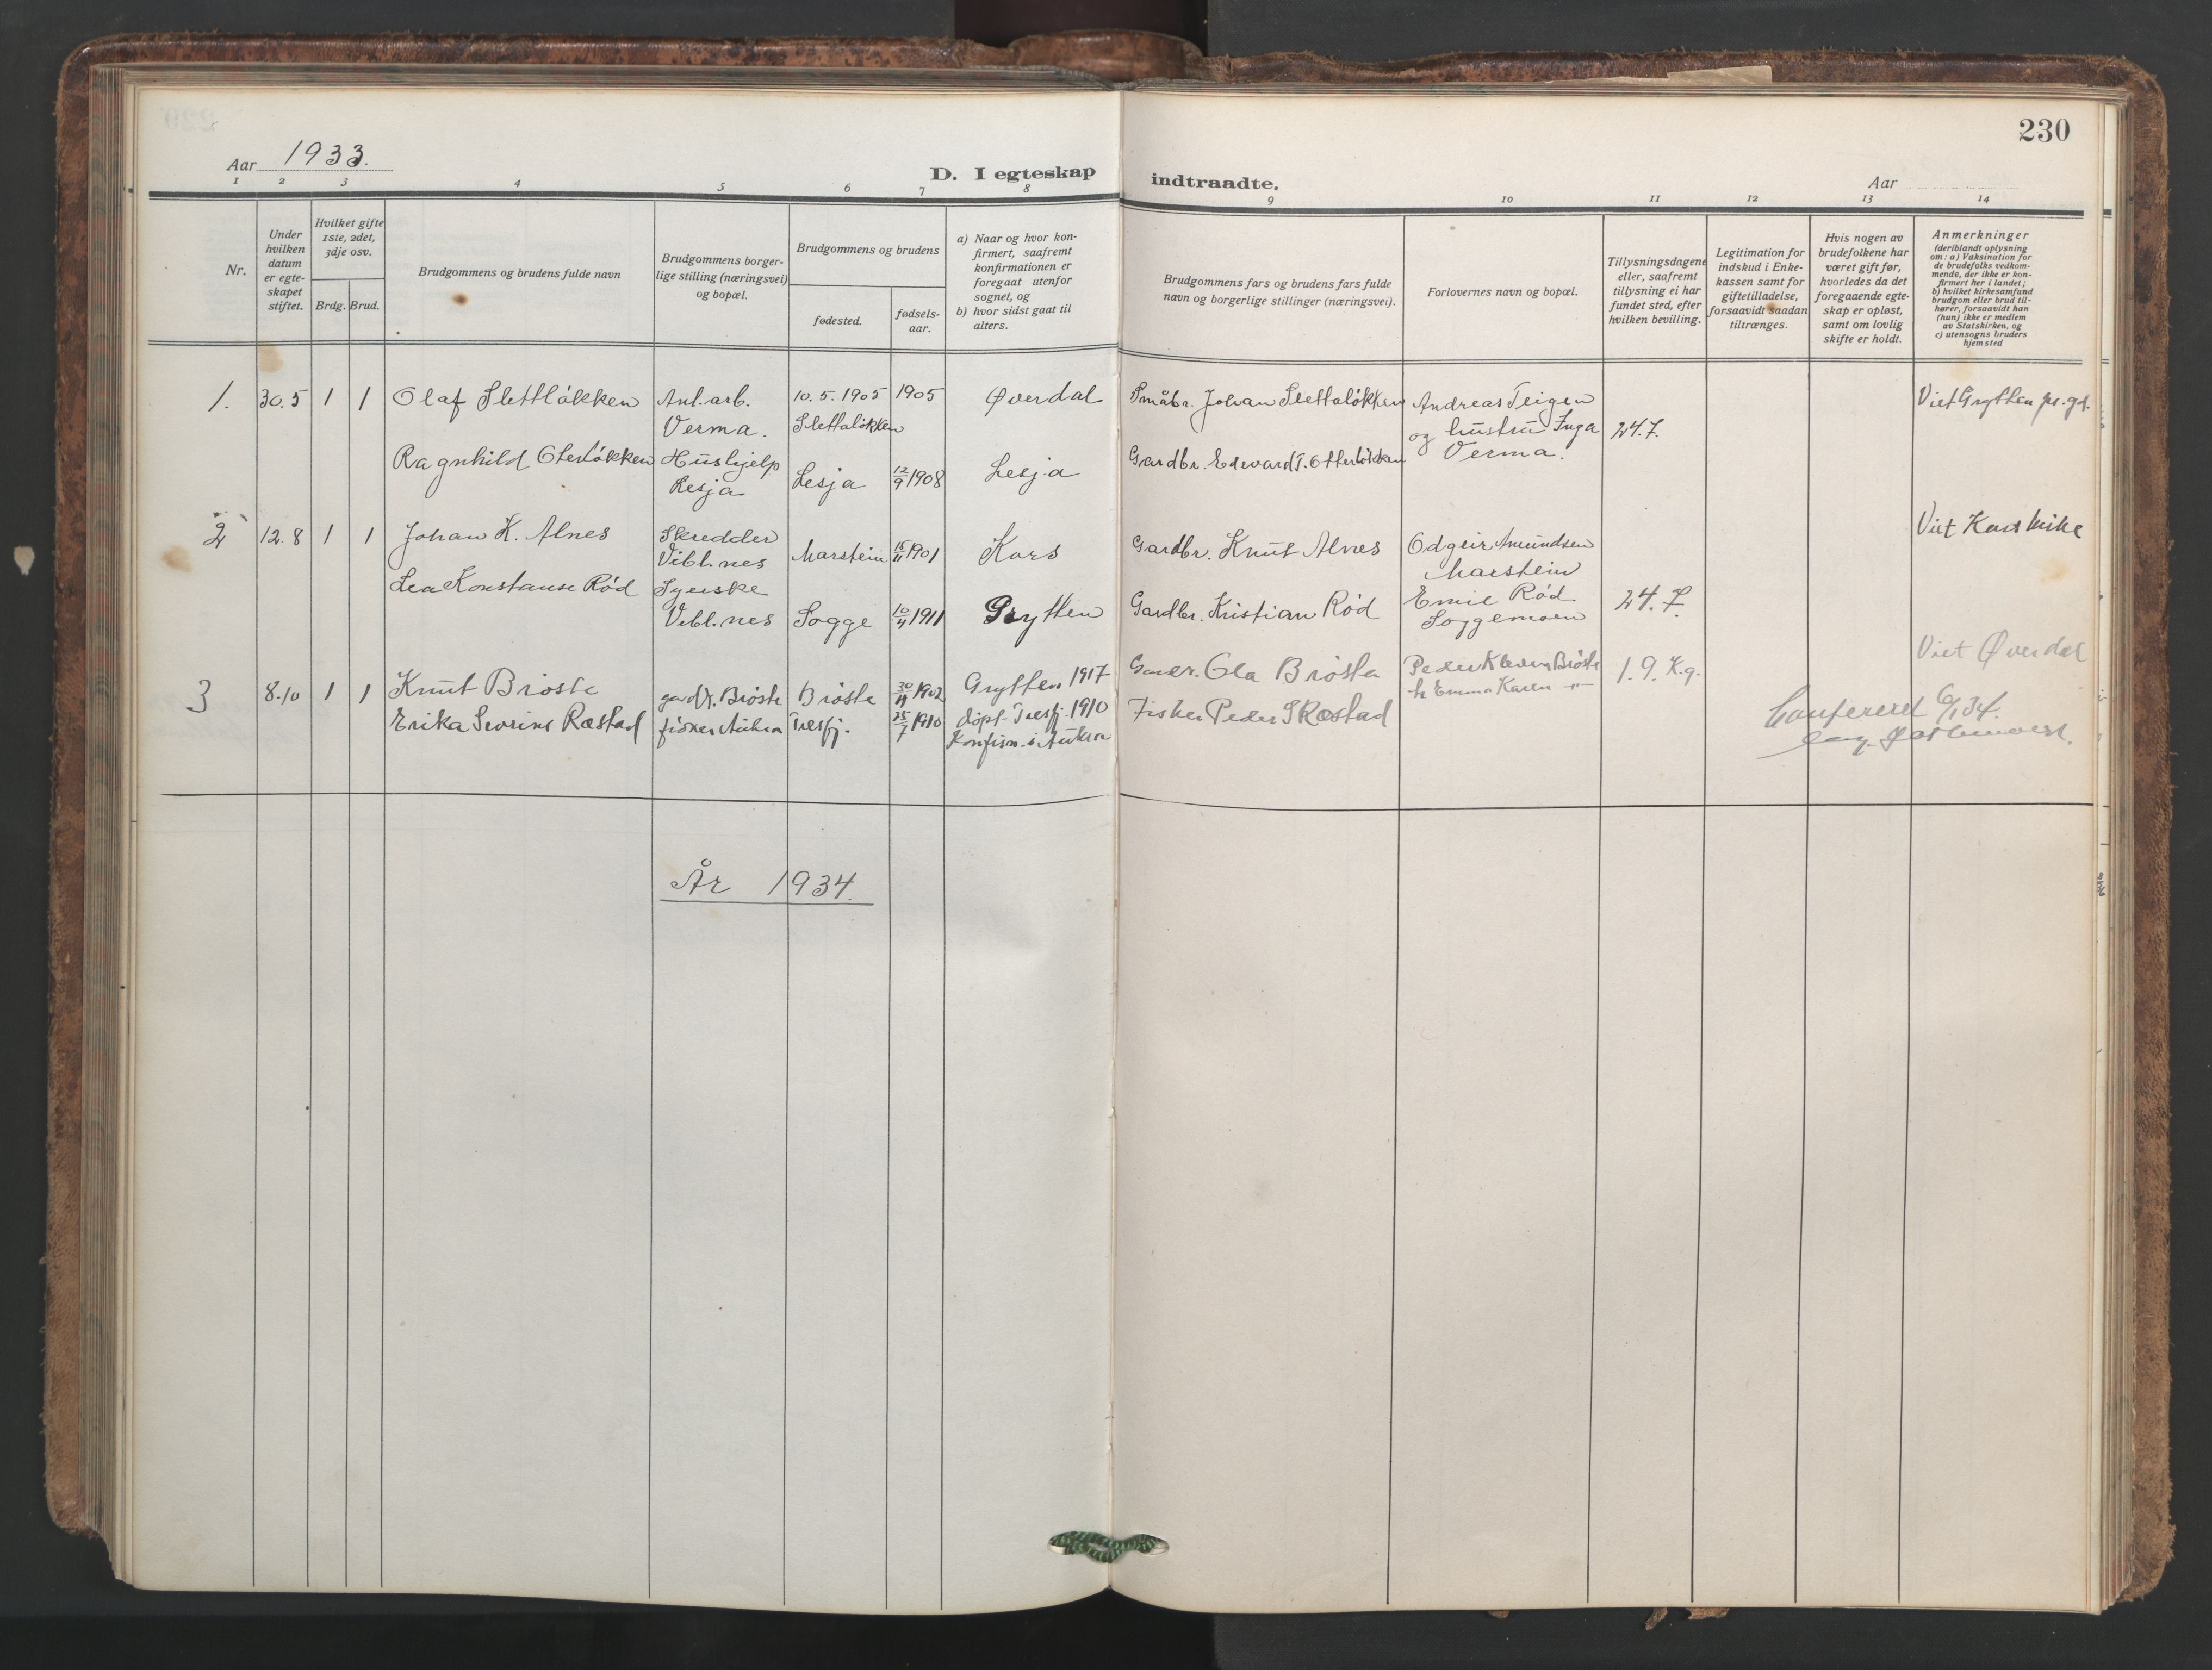 230
Aar 1933.
D. I egteskap indtraadte.
Aar
1 2 3 4 5 6 7 8 9 10 11 12 13 14
Nr.
Under hvilken datum er egte-skapet stiftet.
Hvilket gifte 1ste, 2det, 3dje osv.
Brdg. Brud.
Brudgommens og brudens fulde navn
Brudgommens borger-lige stilling (næringsvei) og bopæl.
Brudgommens og brudens
fødested.
fødsels-aar.
a) Naar og hvor kon-firmert, saafremt konfirmationen er foregaat utenfor sognet, og
b) hvor sidst gaat til alters.
Brudgommens fars og brudens fars fulde navn og borgerlige stillinger (næringsvei).
Forlovernes navn og bopæl.
Tillysningsdagene eller, saafremt tillysning ei har fundet sted, efter hvilken bevilling.
Legitimation for indskud i Enke-kassen samt for giftetilladelse, forsaavidt saadan tiltrænges.
Hvis nogen av brudefolkene har været gift før, hvorledes da det foregaaende egte-skap er opløst, samt om lovlig skifte er holdt.
Anmerkninger (deriblandt oplysning om: a) Vaksination for de brudefolks vedkom-mende, der ikke er kon-firmert her i landet; b) hvilket kirkesamfund brudgom eller brud til-hører, forsaavidt han (hun) ikke er medlem av Statskirken, og c) utensogns bruders hjemsted
1. 30.5 1 1 Olaf Slettløkken Anl.arb. Verma. 10.5.1905 Slettaløkken 1905 Øverdal Småbr. Johan Slettaløkken Andreas Teigen og hustru Inga Verma. 24.7. Viet Grytten ps.gd.
Ragnhild Oterløkken Hushjelp Lesja Lesja 12/9 1908 Lesja Gardbr. Edevard T. Otterløkken
2 12.8 1 1 Johan K. Alnes Skredder Vebl.nes Marstein 15/11 1901 Kors Gardbr. Knut Alnes Odgeir Amundsen Marstein Viet Kors kirke
Lea Konstanse Rød Syerske Vebl.nes Sogge 10/4 1911 Grytten Gardbr. Kristian Rød Emil Rød Soggemoen 24.7.
3 8.10 1 1 Knut Brøste Brøste Brøste 30/4 1902 Grytten 1917 Ola Brøste Peder Brøste 1.9. K.g. Viet Øverdal
Erika Severine Røstad fisker Aukra Tresfj. 25/7 1910 døpt Tresfj. 1910 Konfirm. i Aukra Fisker Peder Røstad h Emma Karen -"-
Confereret 6/1 34.
År 1934.